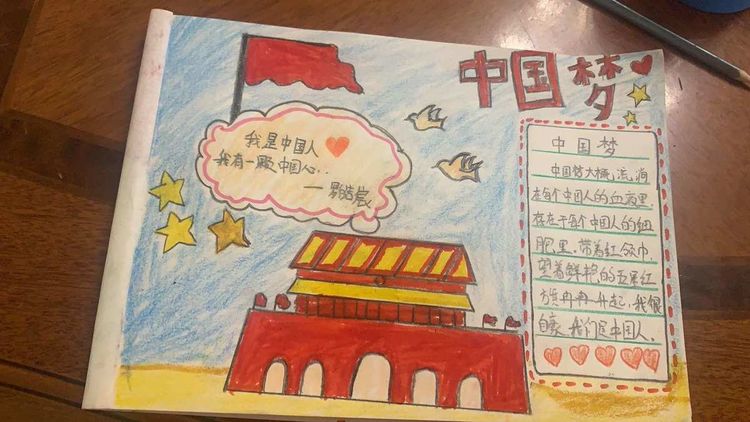 中国梦
我是中国人
我有一颗中国心..
中国梦
中国梦大概,流淌
在每个中国人的血液里
存在于每个中国人的细
胞里。带着红领巾,
望着鲜艳的五星红
旗冉冉升起,我很
自豪,我们是中国人。